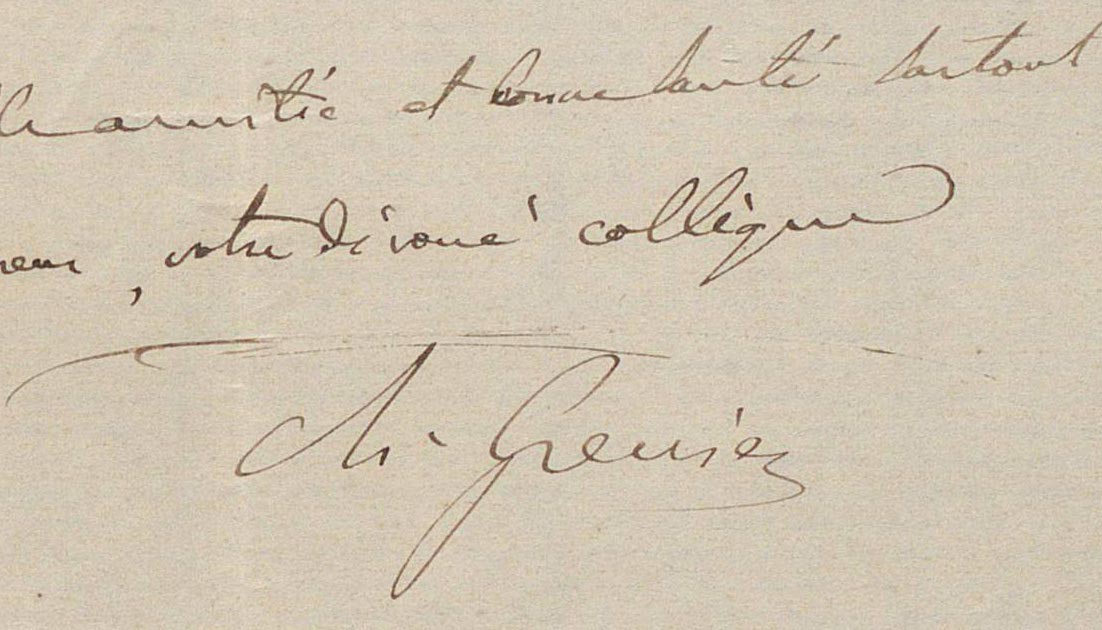 amitié et bonne santé surtout
, votre dévoué collègue
Ch. Grenier